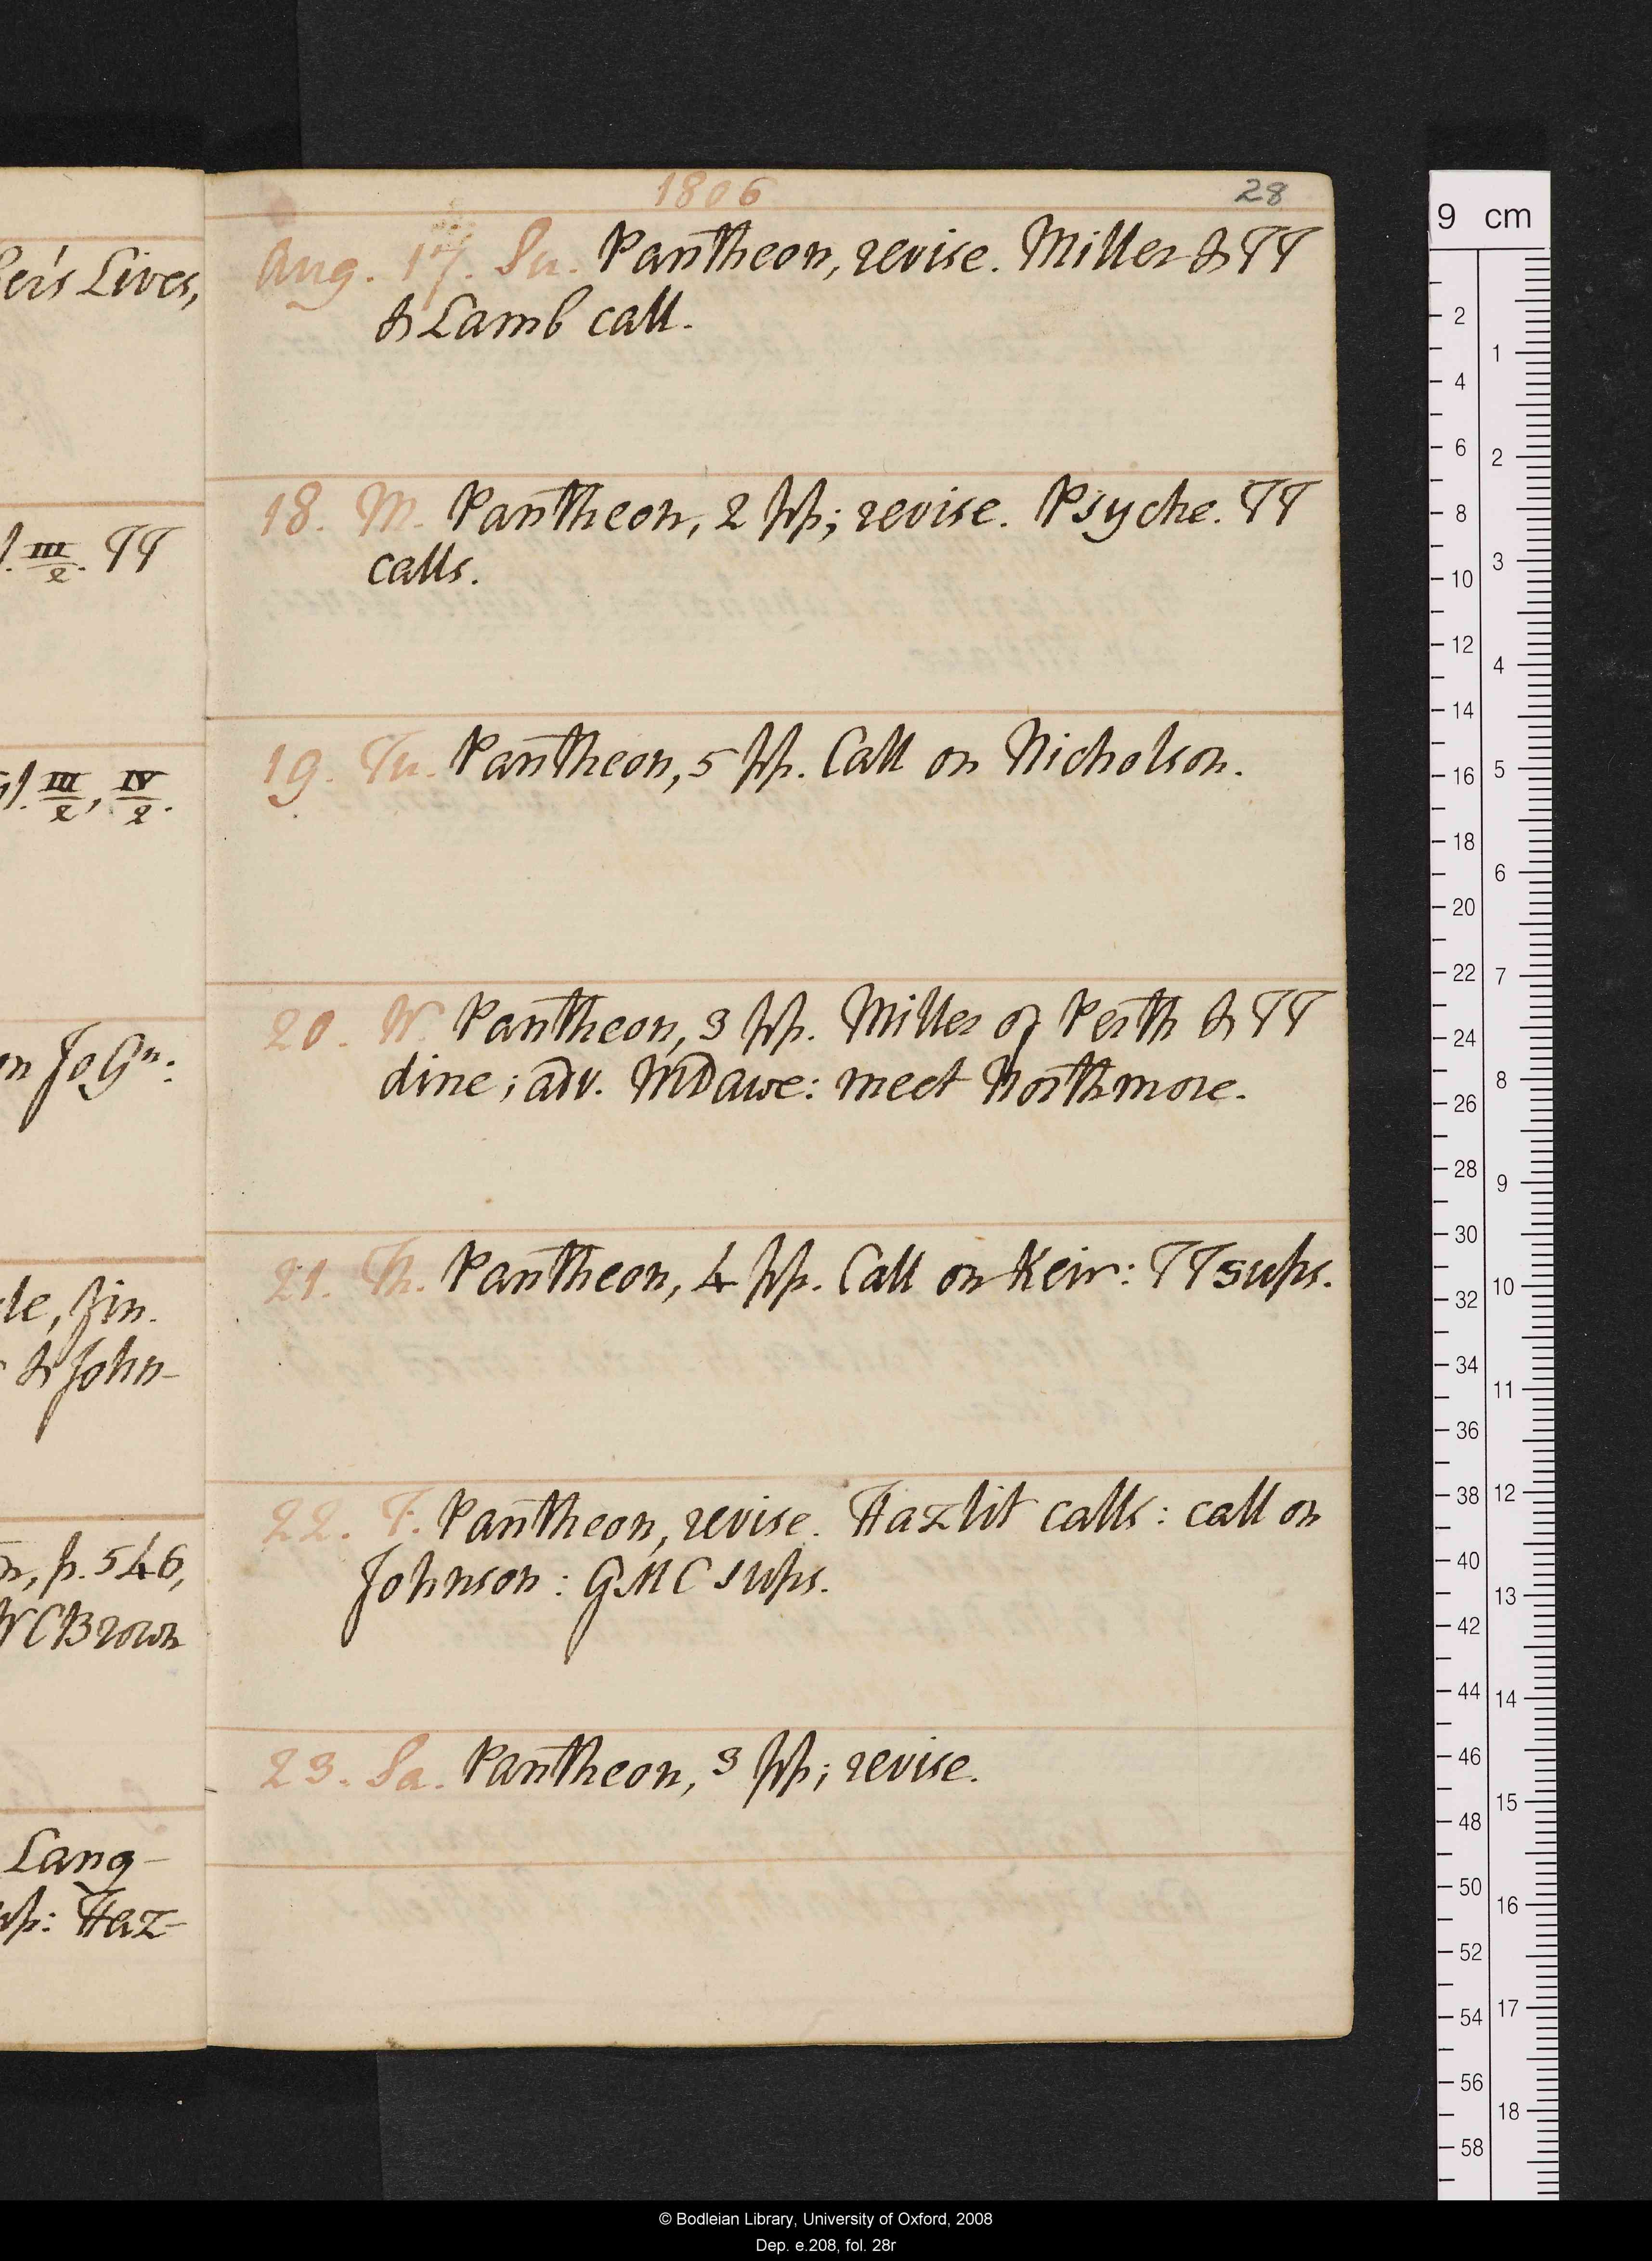 1806
28
Aug. 17. Su. Pantheon, revise. Miller & TT
& Lamb call.
18. M. Pantheon, 2 pp; revise. Psyche. TT
calls.
19. Tu. Pantheon, 5 pp. Call on Nicholson.
20. W. Pantheon, 3 pp. Miller of Perth & TT
dine; adv. MDawe: meet Northmore.
21. Th. Pantheon, 4 pp. Call on Keir: TT sups.
22. F. Pantheon, revise. Hazlit calls: call on
Johnson: GMC sups.
23. Sa. Pantheon, 3 pp; revise.
Lives,
III/2. TT
III/2, IV/2.
on Jo Gn:
le, fin.
& John-
, p. 546,
WCBrown
Lang-
Haz-
9 cm
2
4
6
8
10
12
14
16
18
20
22
24
26
28
30
32
34
36
38
40
42
44
46
48
50
52
54
56
58
1
2
3
4
5
6
7
8
9
10
11
12
13
14
15
16
17
18
© Bodleian Library, University of Oxford, 2008
Dep. e.208, fol. 28r